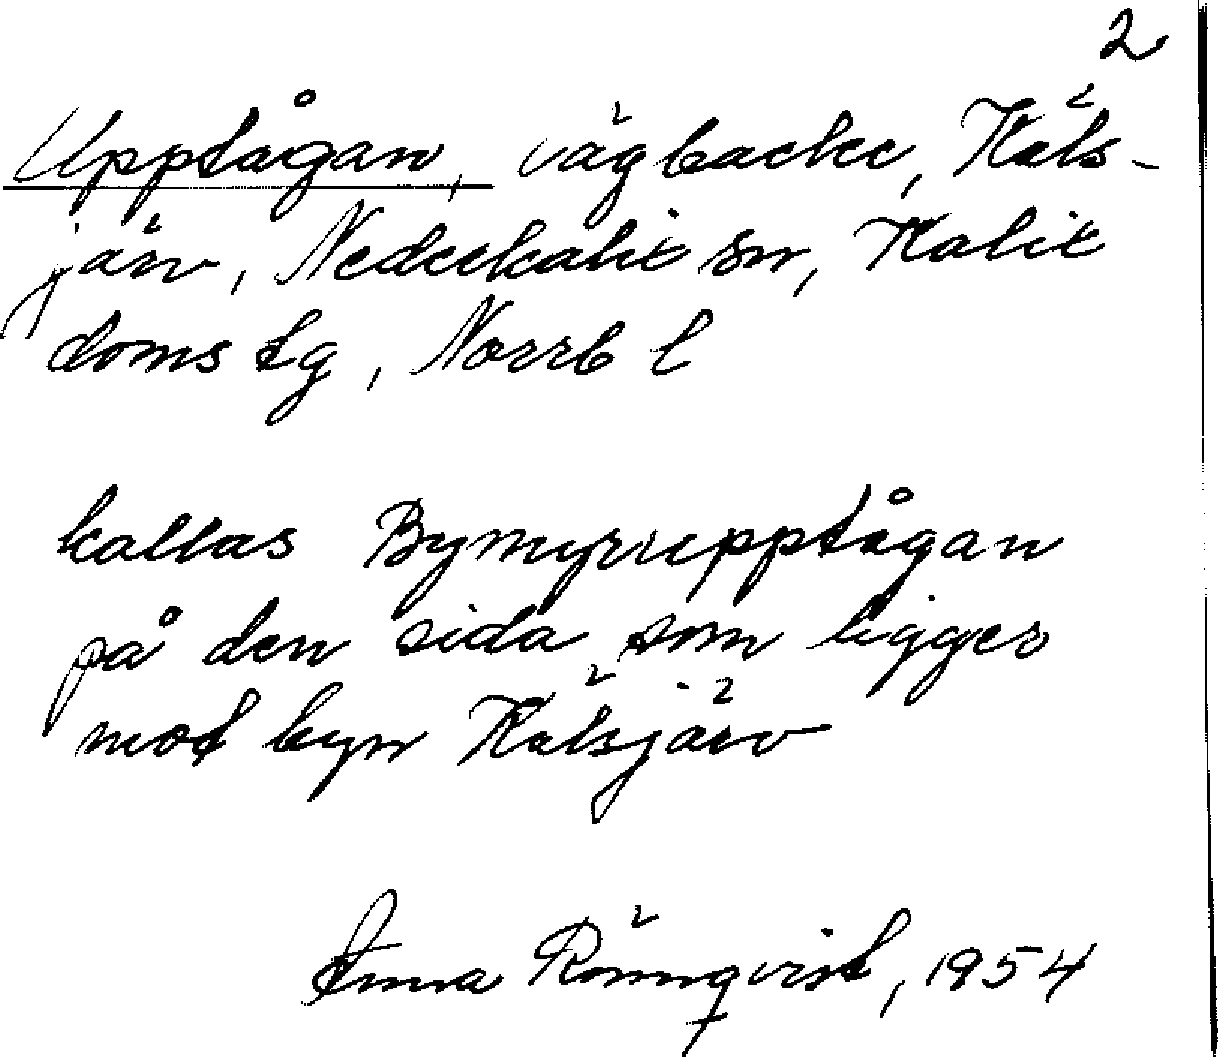 2
Upptågan, vägbacke, Räls-
järv, Nederkalix sn, Kalix
doms lg, Norrb l
kallas Bymyrupptågan
på den sida som ligger
mot byn Kälsjärv
Anna Rönnqvist, 1954